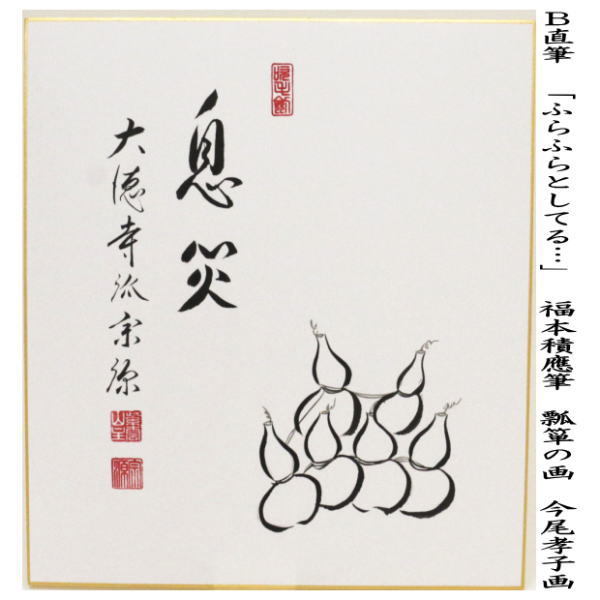 B直筆 「ふらふらとしてる…」 福本積應筆 瓢箪の画 今尾孝子画
息災
大徳寺派宗源